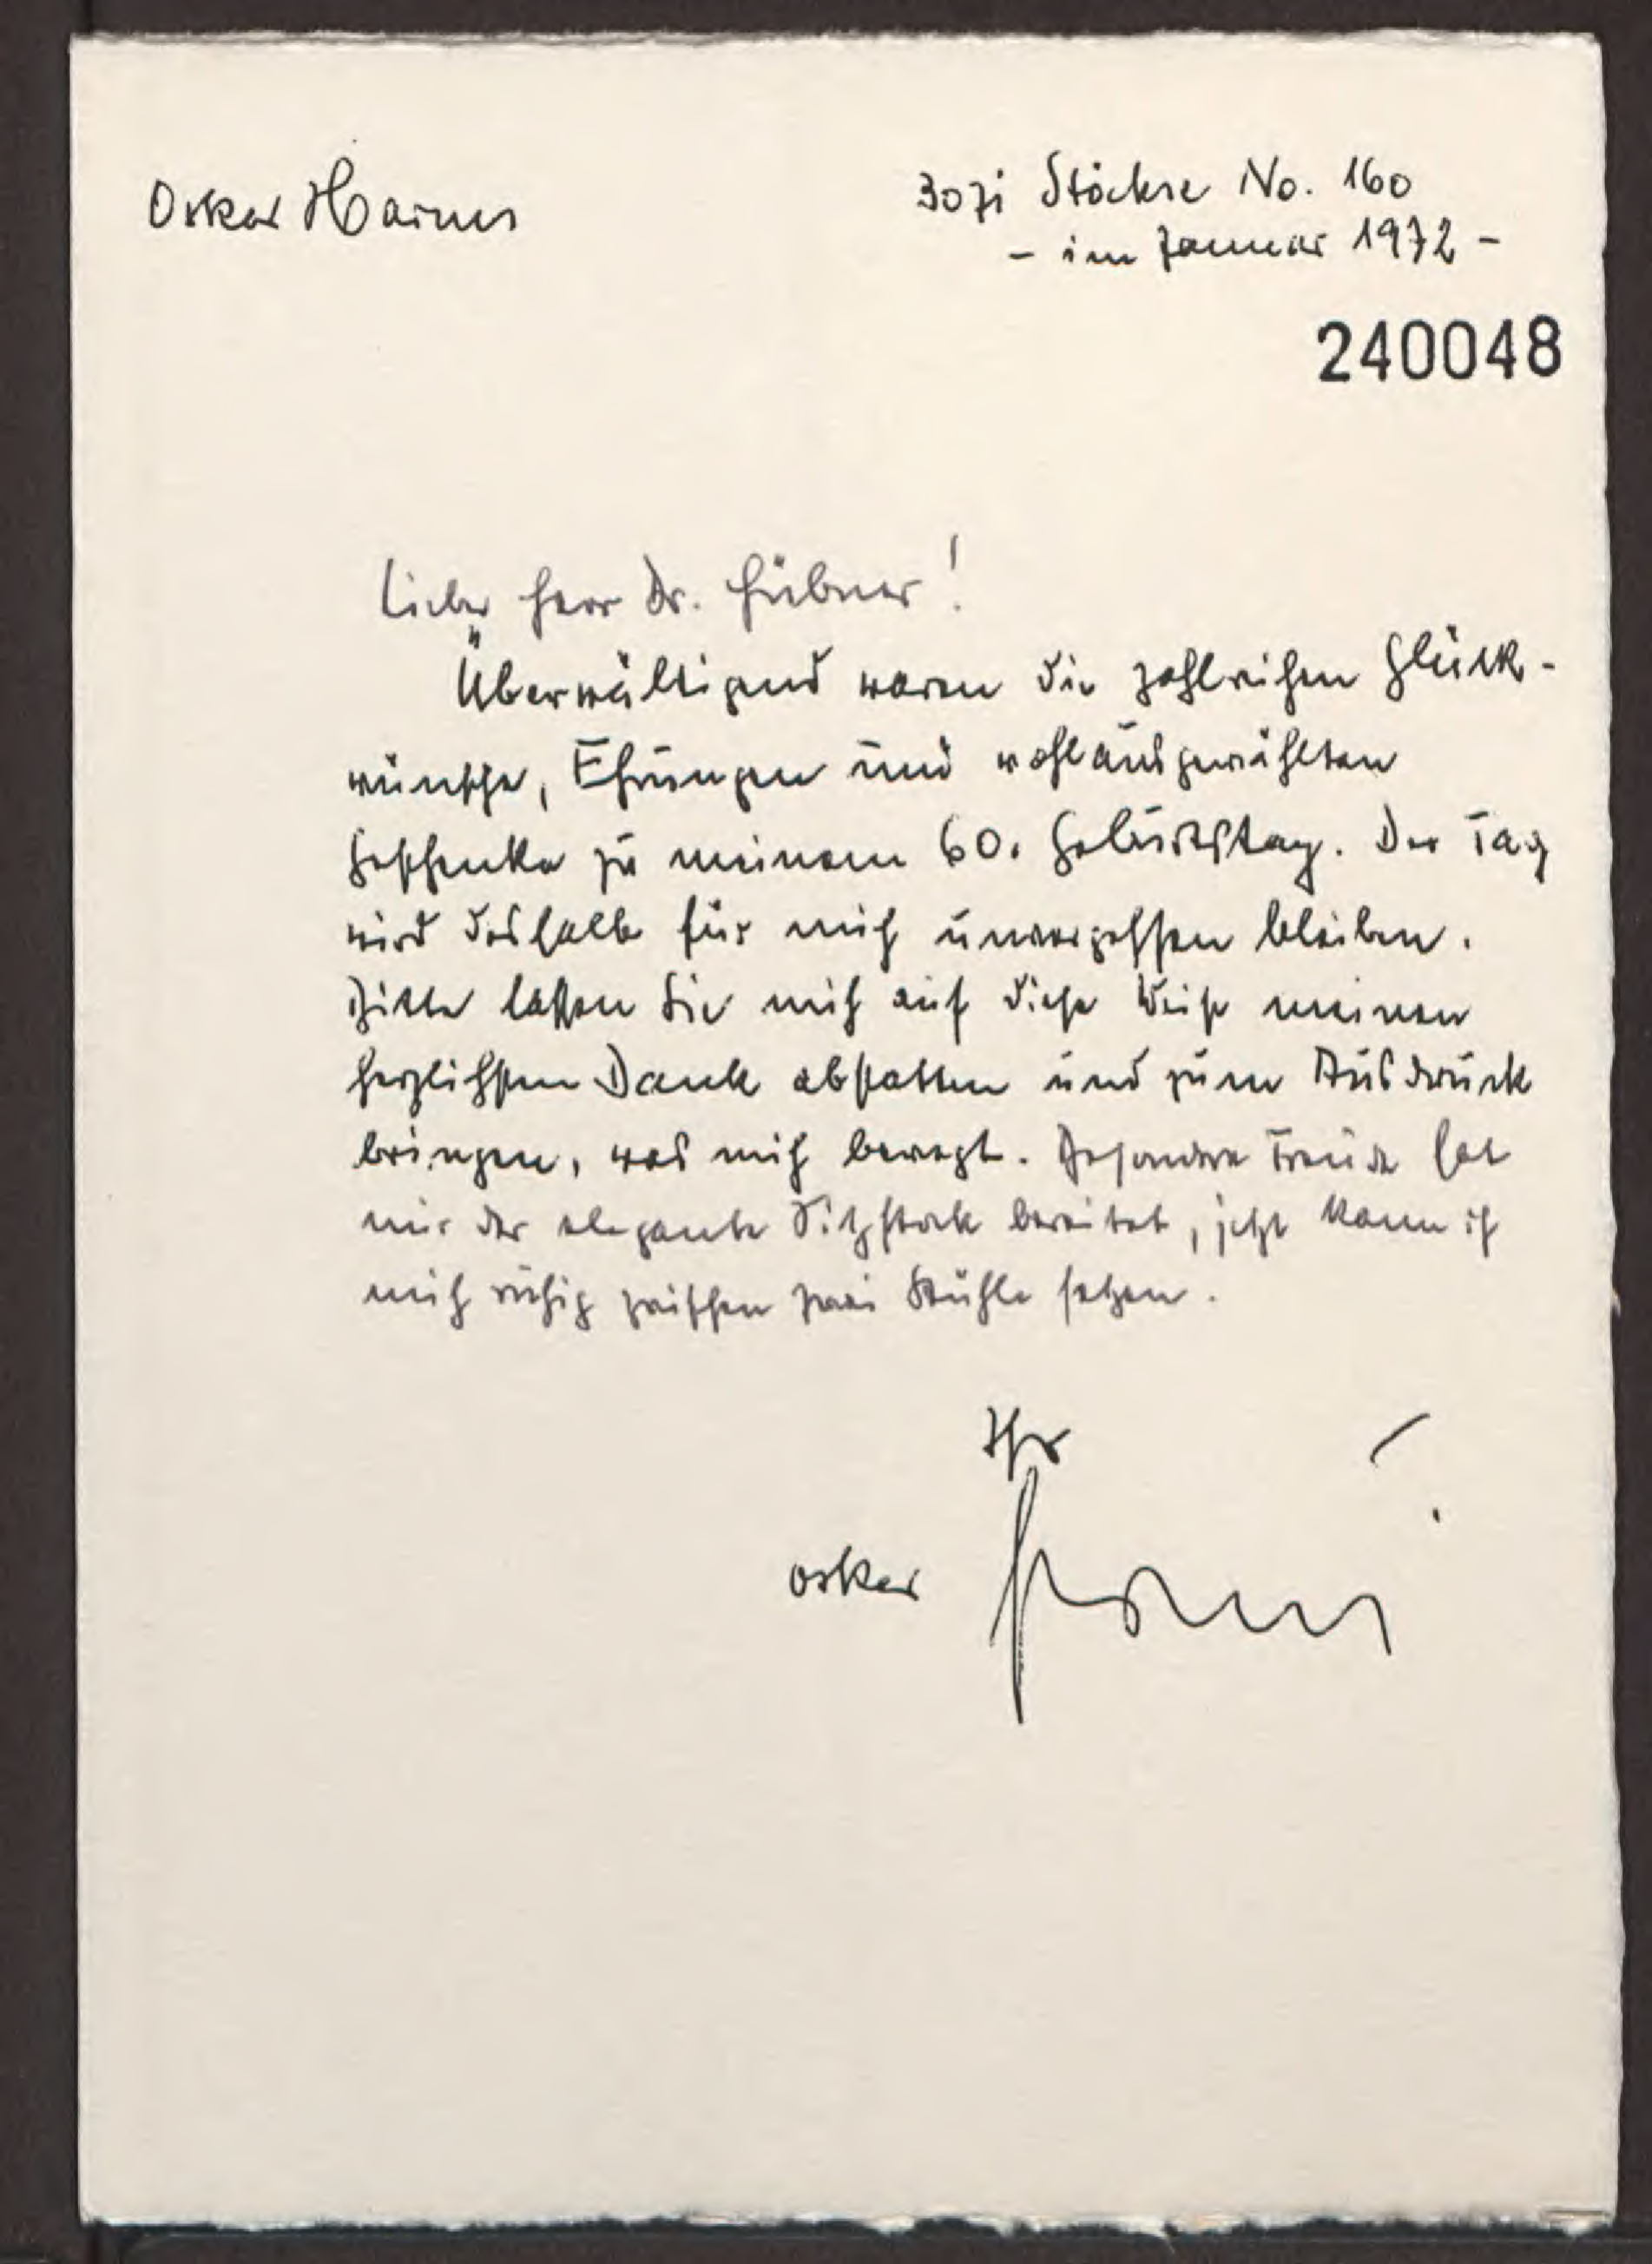 Oskar Harms
3071 Stöckse No. 160
- im Januar 1972 -
240048
Lieber Herr Dr. Hübner!
Überwältigend waren die zahlreichen Glück-
wünsche, Ehrungen und wohlausgewählten
Geschenke zu meinem 60. Geburtstag. Der Tag
wird deshalb für mich unvergessen bleiben.
Bitte lassen Sie mich auf diese Weise meinen
herzlichsten Dank abstatten und zum Ausdruck
bringen, was mich bewegt. Besondere Freude hat
mir der elegante Sitzstock bereitet, jetzt kann ich
mich ruhig zwischen zwei Stühle setzen.
Ihr
Oskar